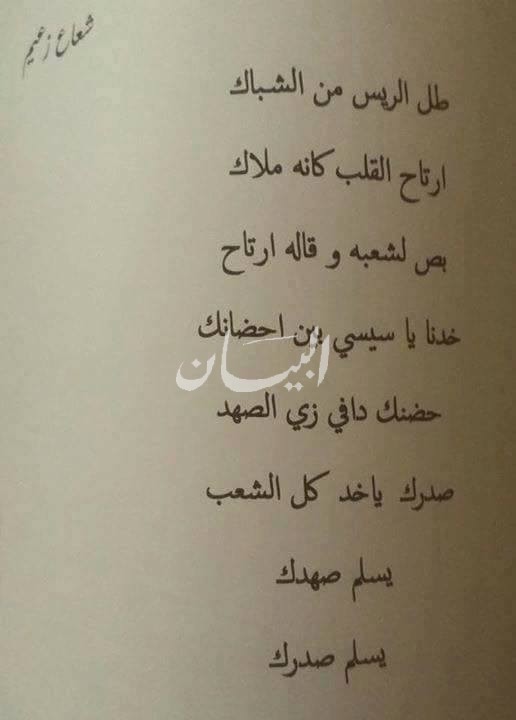 شعاع زعيم
طل الريس من الشباك
ارتاح القلب كانه ملاك
بص لشعبه و قاله ارتاح
خدنا يا سيسي بين احضانك
البيان
حضنك دافي زي الصهد
صدرك ياخد كل الشعب
يسلم صهدك
يسلم صدرك